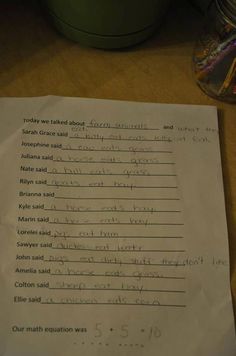 Today we talked about farm animals and what they eat
Sarah Grace said a kitty cat eats
Josephine said a cow eats grass
Juliana said a horse eats grass
Nate said a bull eats grass
Rilyn said goats eat hay
Brianna said
Kyle said a horse eats hay
Marin said a horse eats hay
Lorelei said pigs eat ham
Sawyer said duckies eat
John said pigs eat dirty stuff they don't like
Amelia said a horse eats grass
Colton said sheep eat hay
Ellie said a chicken eats corn
Our math equation was 5 + 5 = 10